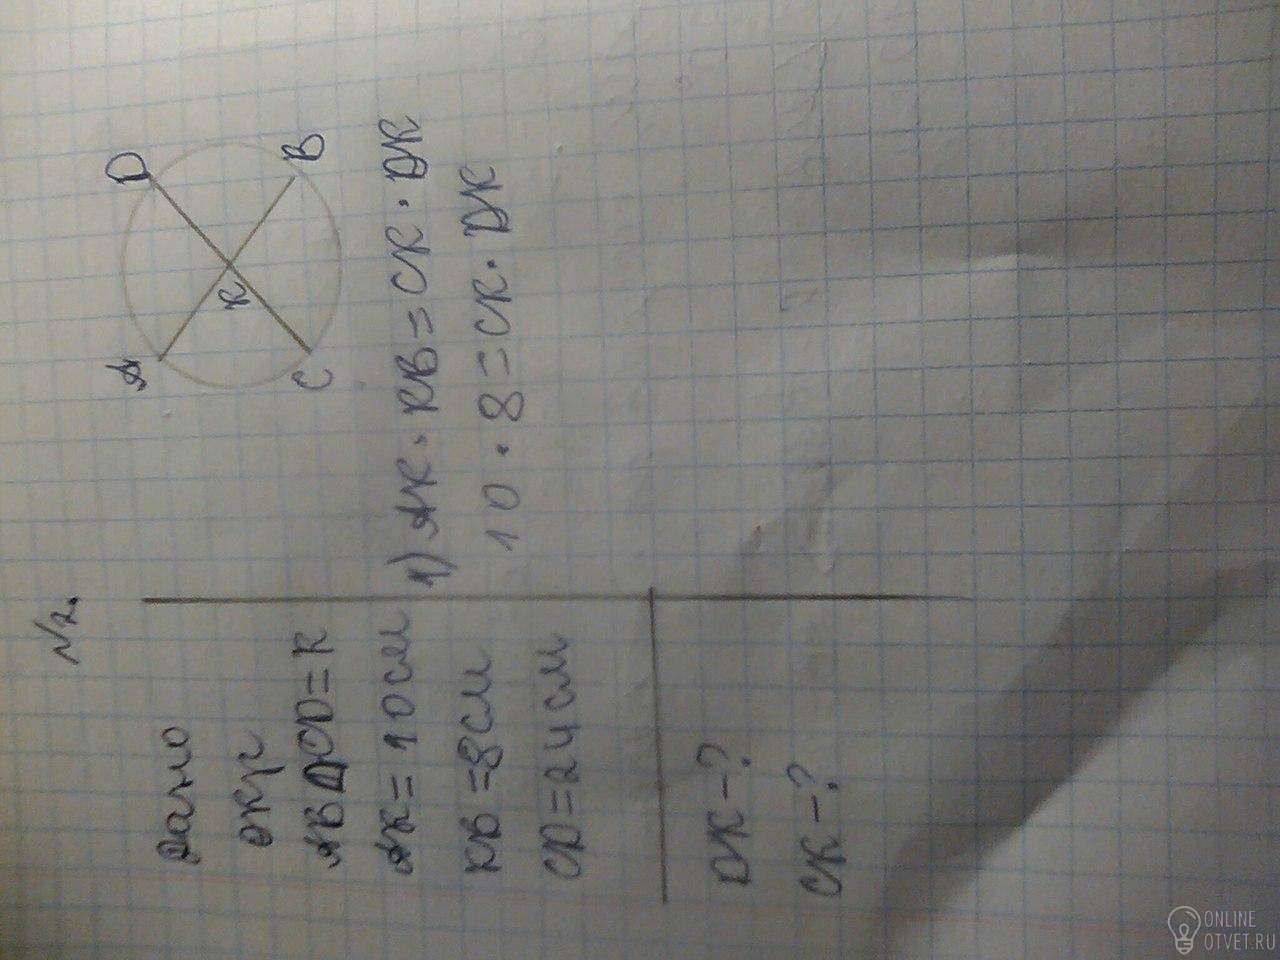 №2.
Дано
окр
AB∩CD=K
AK=10см
KB=8см
CD=24см
DK-?
CK-?
A
D
K
C
B
1) AK·KB=CK·DK
10·8=CK·DK
ONLINE
OTVET.RU